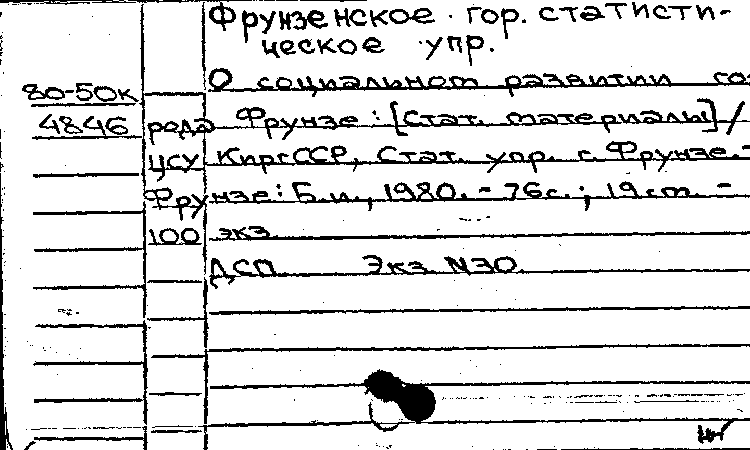 Фрунзенское гор. статисти-
ческое упр.
80-50к О социальном развитии го
4846 рода Фрунзе: [Стат. материалы] /
ЦСУ КиргССР, Стат. упр. г. Фрунзе.-
Фрунзе: Б.и., 1980. - 76с.; 19см. -
100 экз
ДСП Экз. N30.